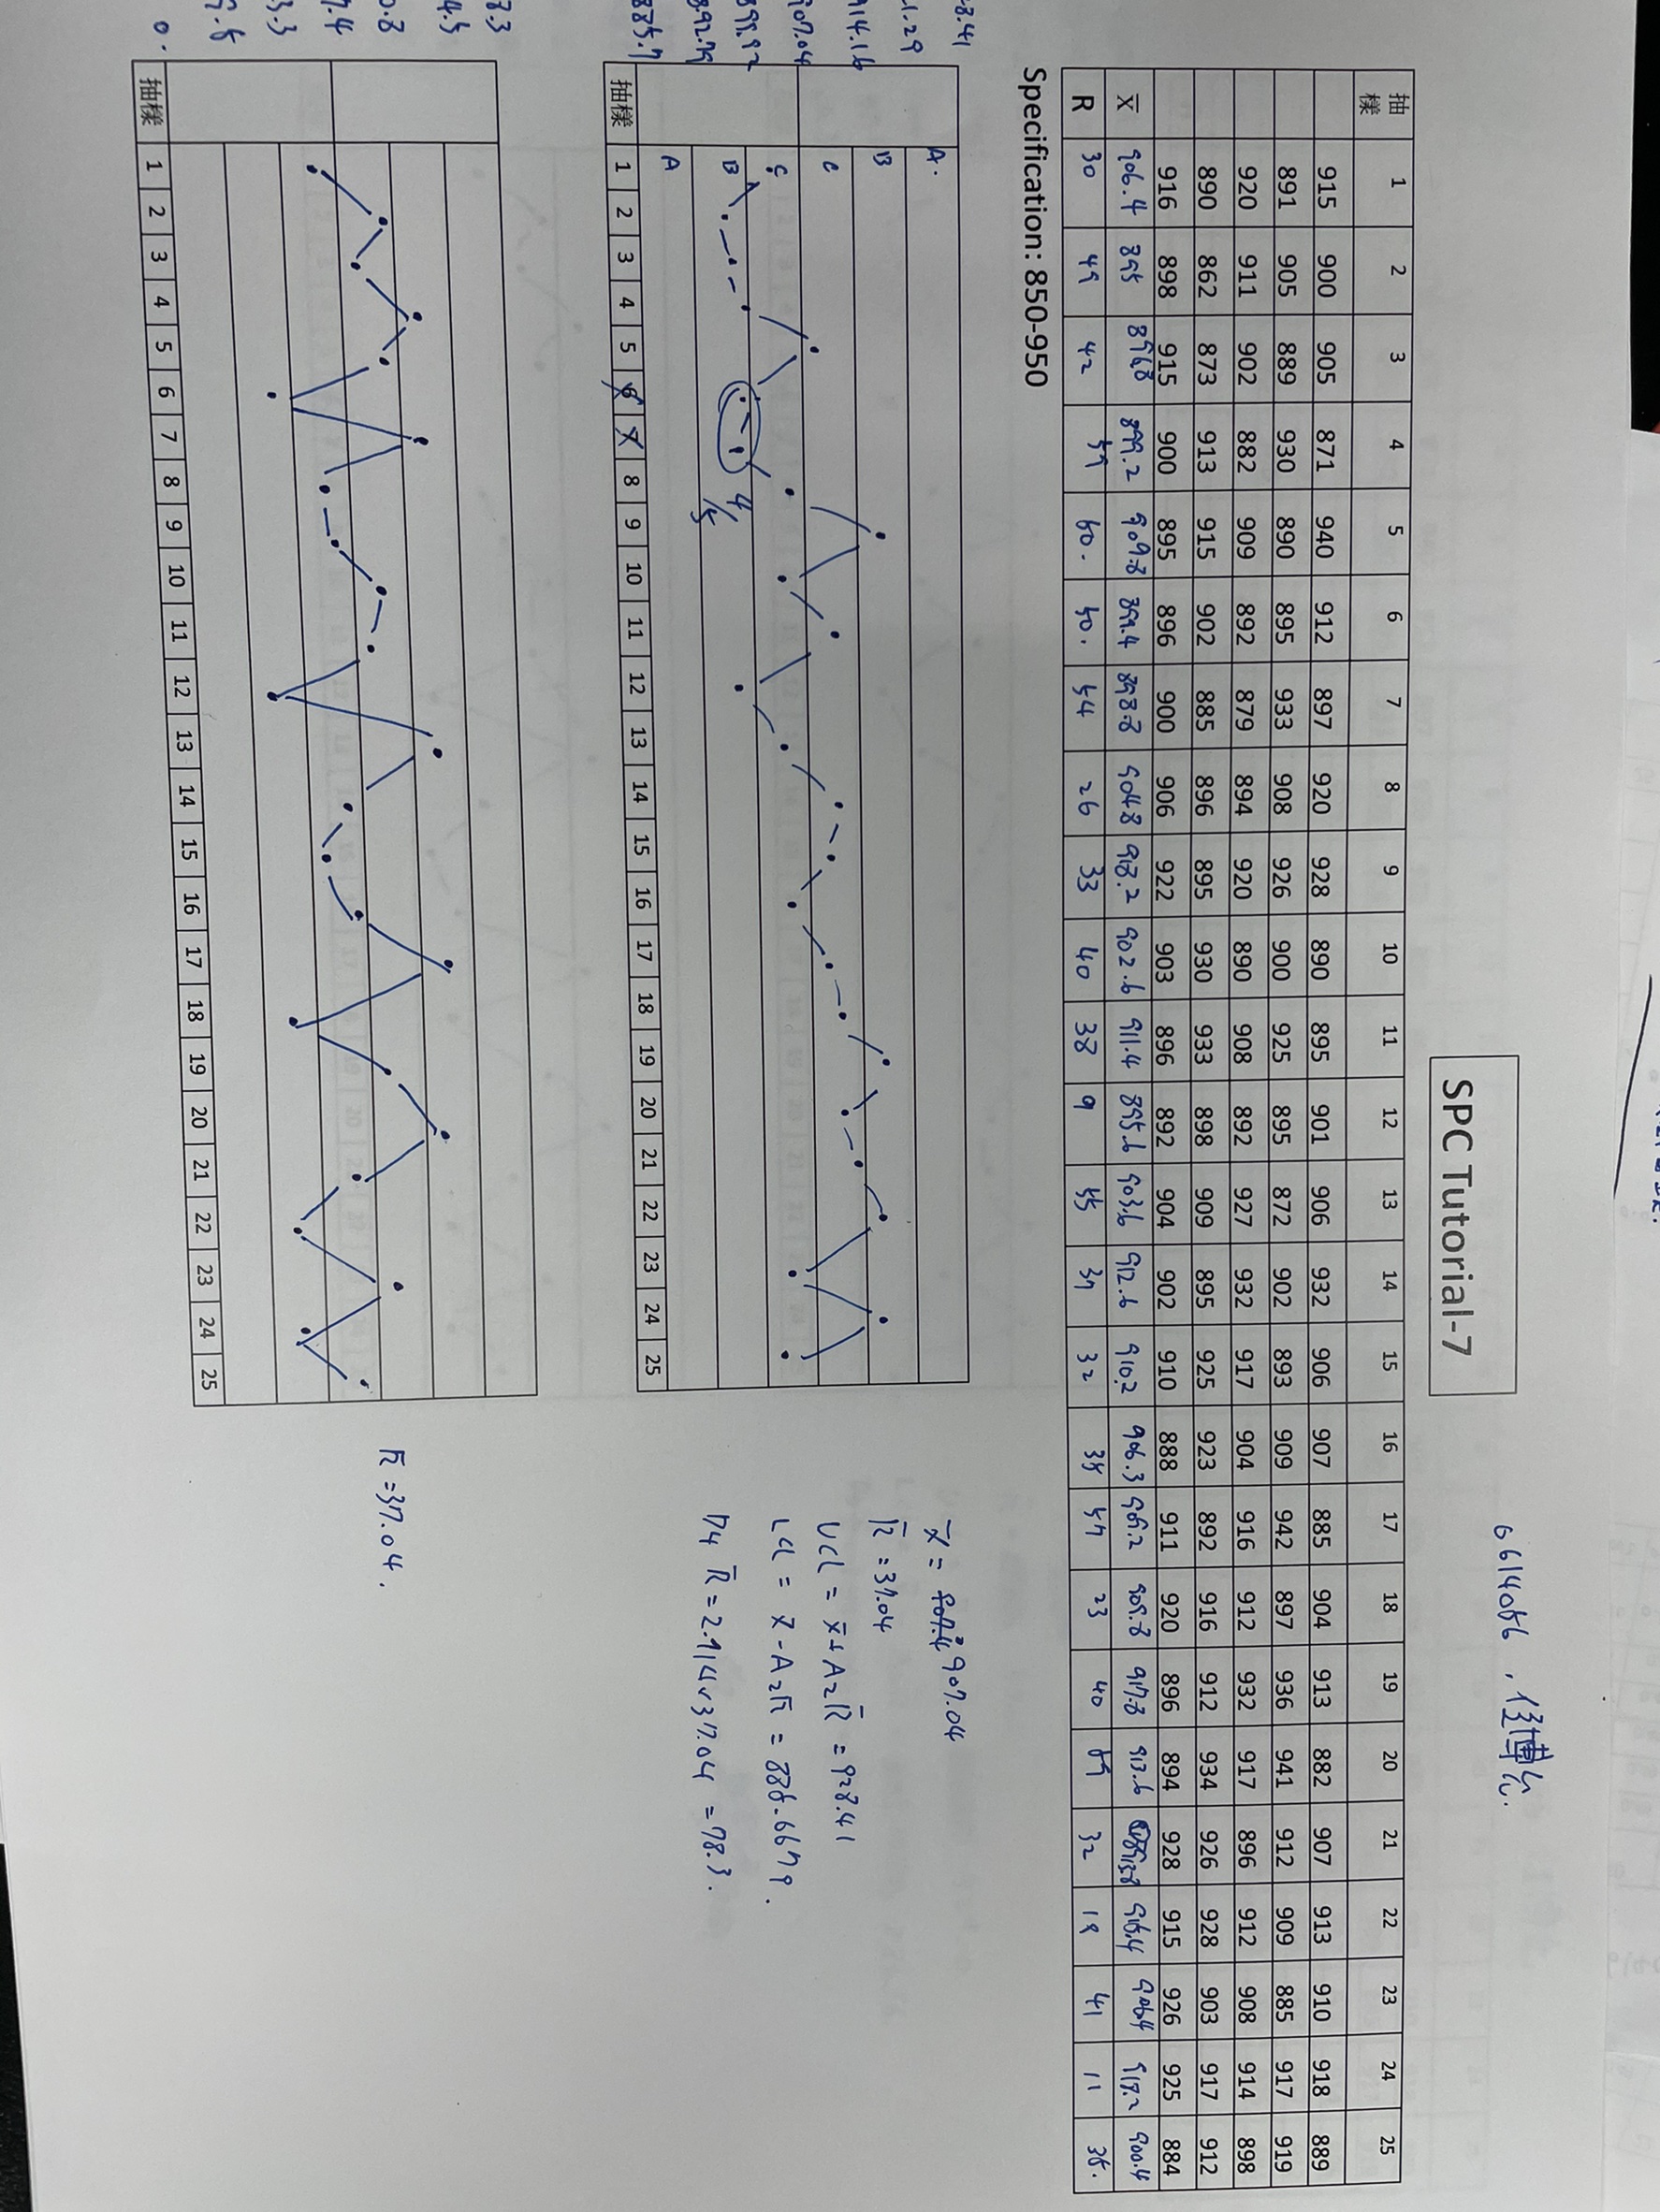 6614056
SPC Tutorial-7
抽樣 1 2 3 4 5 6 7 8 9 10 11 12 13 14 15 16 17 18 19 20 21 22 23 24 25
915 900 905 871 940 912 897 920 928 890 895 901 906 932 906 907 885 904 913 882 907 913 910 918 889
891 905 889 930 890 895 933 908 926 900 925 895 872 902 893 909 942 897 936 941 912 909 885 917 919
920 911 902 882 909 892 879 894 920 890 908 892 927 932 917 904 916 912 932 917 896 912 908 914 898
890 862 873 913 915 902 885 896 895 930 933 898 909 895 925 923 892 916 912 934 926 928 903 917 912
916 898 915 900 895 896 900 906 922 903 896 892 904 902 910 888 911 920 896 894 928 915 926 925 884
X̅ 906.4 895 896.8 899.2 909.8 899.4 898.8 904.8 918.2 902.6 911.4 895.6 903.6 912.6 910.2 906.3 909.2 909.8 917.8 913.6 913.8 915.4 906.4 918.2 900.4
R 30 49 42 59 50. 50. 54 26 33 40 38 9 55 37 32 35 57 23 40 59 32 19 41 11 35.
Specification: 850-950
1.29
914.16
907.04
899.92
892.79
885.7
A.
B
C
C
B
A
4/5
抽樣 1 2 3 4 5 6 7 8 9 10 11 12 13 14 15 16 17 18 19 20 21 22 23 24 25
X̿ = 907.04
R̅ = 37.04
UCL = X̿ + A2R̅ = 928.41
LCL = X̿ - A2R̅ = 885.6679.
D4 R̅ = 2.114×37.04 = 78.3.
抽樣 1 2 3 4 5 6 7 8 9 10 11 12 13 14 15 16 17 18 19 20 21 22 23 24 25
R̅ = 37.04.